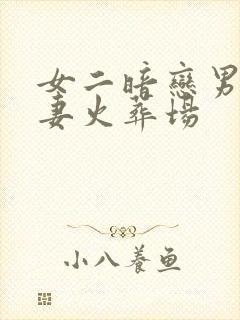 女二暗戀男
妻火葬場
小八養魚